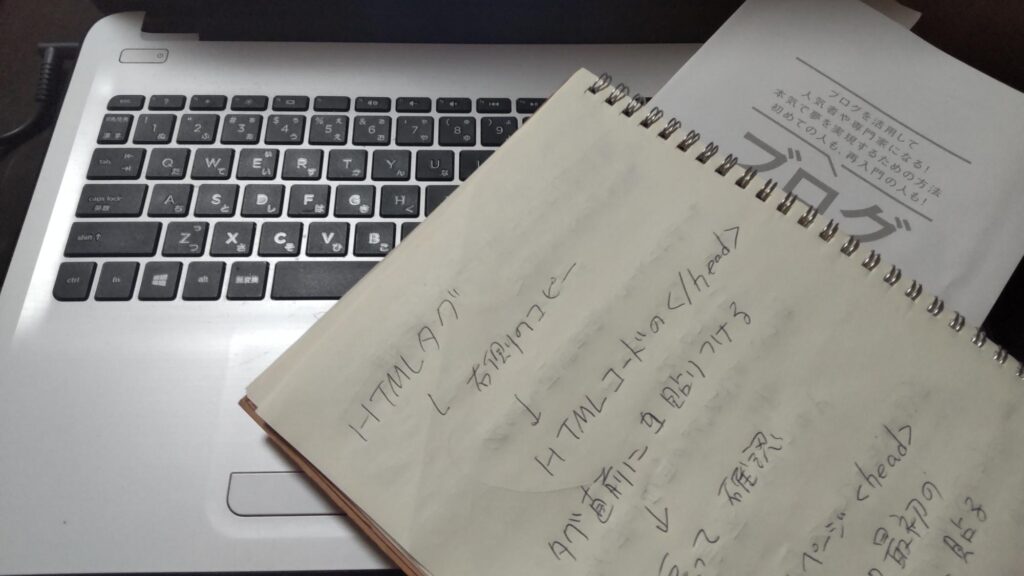 ブログを活用して
人気者や専門家になる!
本気で夢を実現するための方法
初めての人も、再入門の人も!
ブログ
HTMLタグ
右側のコピー
↓
HTMLコードの</head>
タグ直前に 貼りつける
↓
って 確認
ページ<head>
最初の
貼る
caps lock
shift
ctrl
fn
alt
無変換
Q W E R T Y U
A S D F G H
Z X C V B